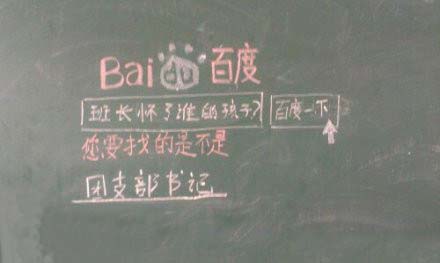 Bai du 百度
班长怀了谁的孩子? 百度一下
您要找的是不是
团支部书记